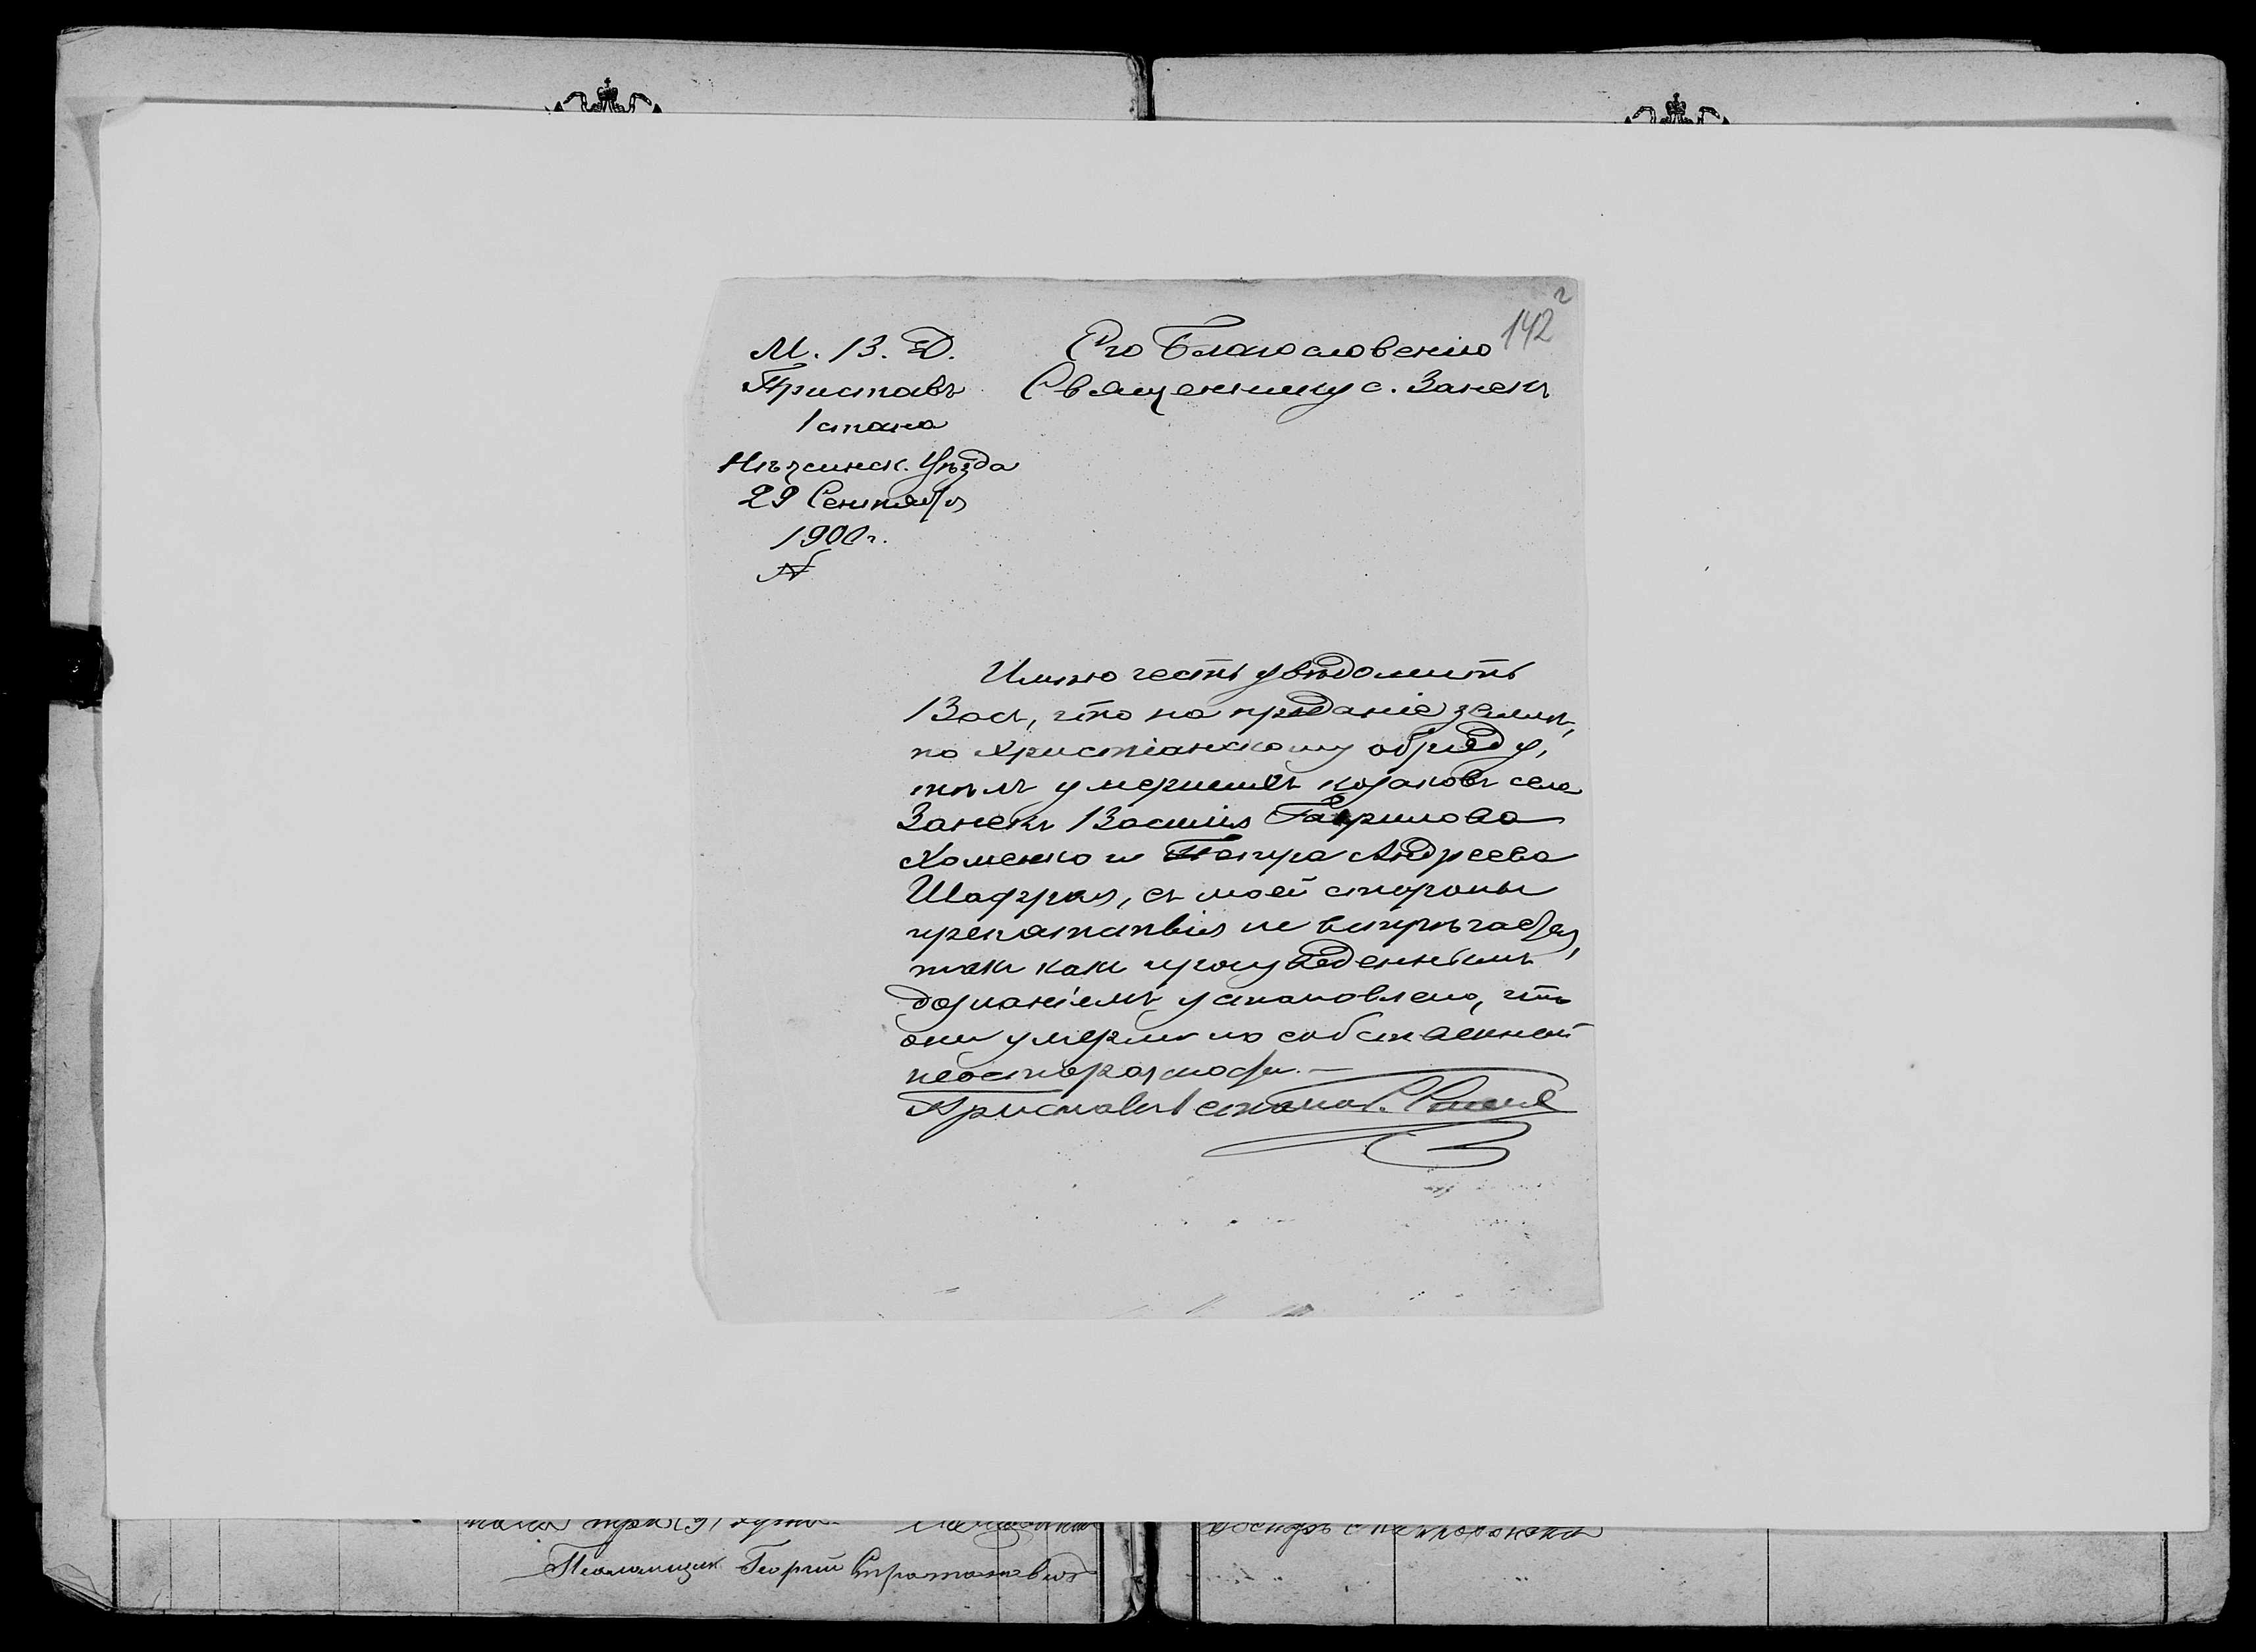 142
г
М. В. Д.
Приставъ
1 стана
Нѣжинск. Уѣзда
29 Сентября
1900 г.
№
Его Благословенію
Священнику с. Занекъ
Имѣю честь увѣдомить
Васъ, что на преданіе землѣ,
по христіанскому обряду,
тѣлъ умершихъ козаковъ села
Занекъ Василія Гаврилова
Хоменко и Петра Андреева
Шафрая, съ моей стороны
препятствія не встрѣчается,
такъ какъ произведеннымъ
дознаніемъ установлено, что
они умерли по собственной
неосторожности.—
Приставъ 1 стана
Псаломщик Георгій